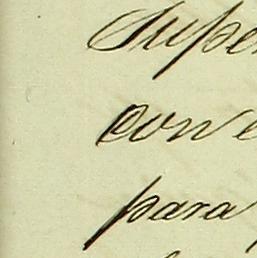 Supe
conve
para